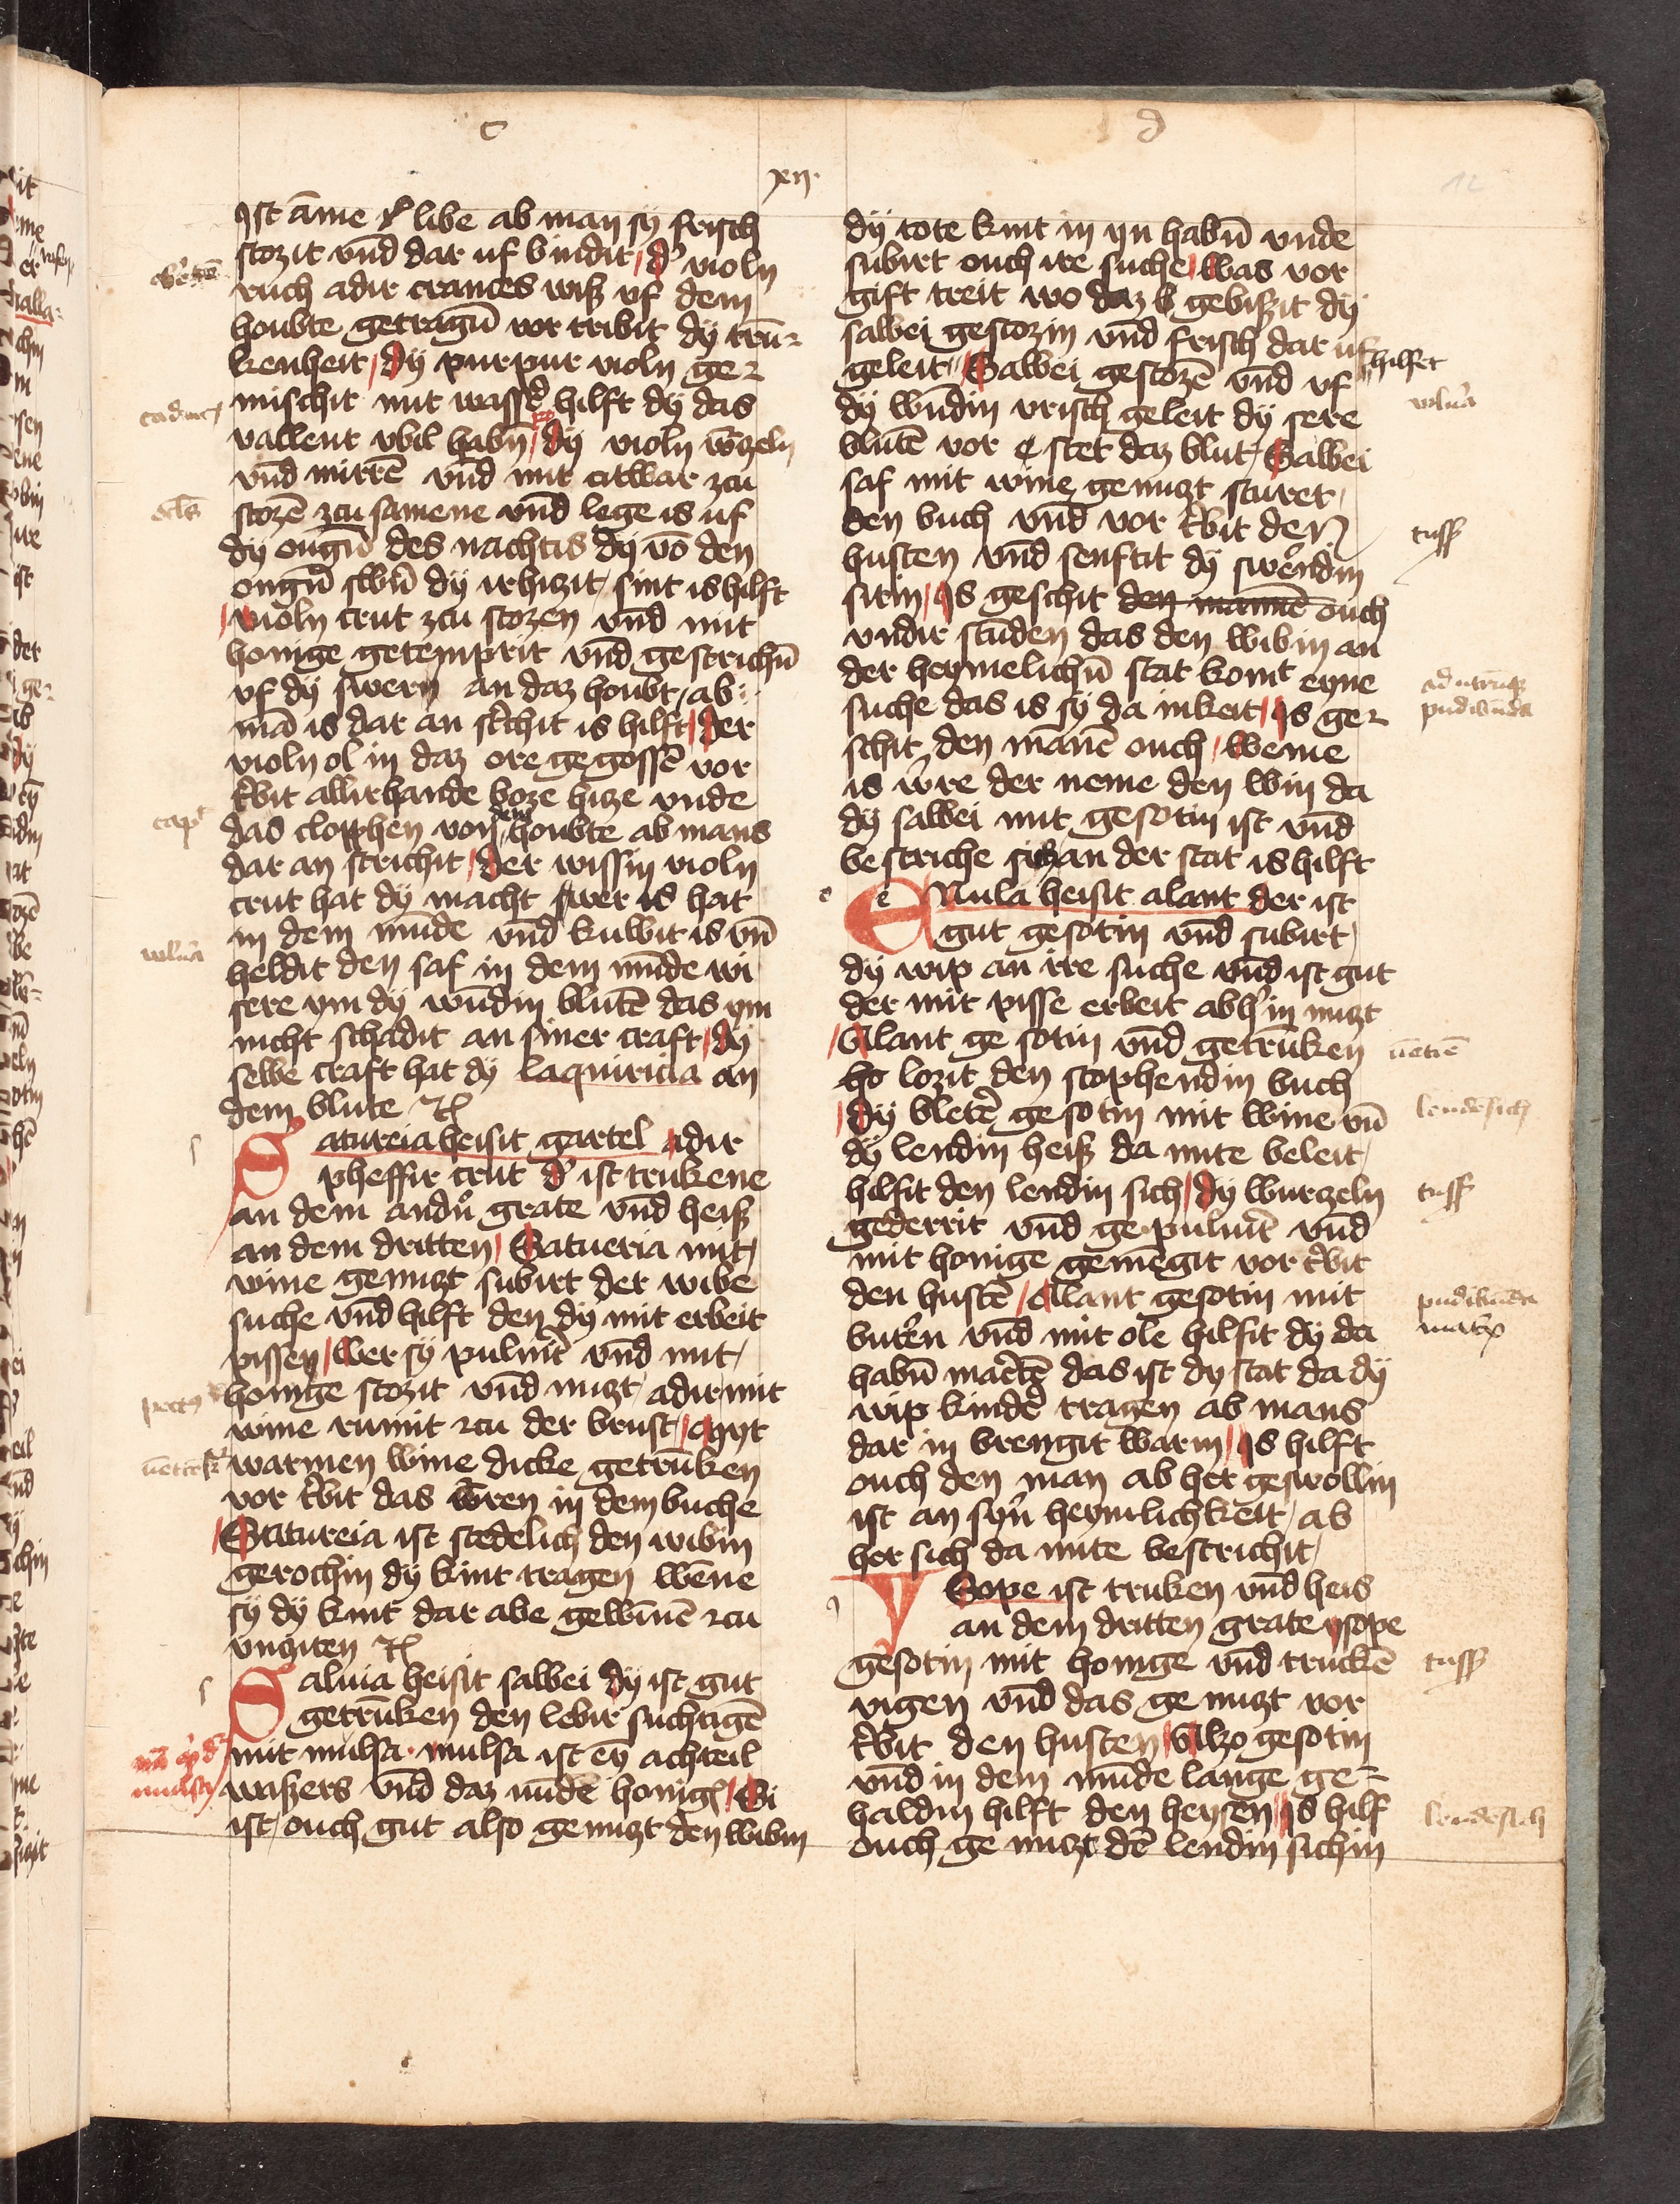 c
d
xii.
12
ist ām̄e libe ab man sÿ frisch
stozit vnd̄ dar uf bindit d' violn
ruch adir crances wiß uf dem
houbte getragn̄ vor tribit dÿ trū-
kenheit dÿ purpur violn ge-
mischit mit wass' hilft dÿ das
vallent vbil habn̄ dÿ violn w̄rzeln
vnd̄ mirrē vnd̄ mit citwar zcu
stozē zcu samene vnd̄ lege is uf
dÿ ougn̄ des nachtis dÿ vō den
ougn̄ swērn dÿ irhizit sint is hilft
violn crut zcu stozen vnd̄ mit
honige getemprit vnd̄ gestrichn̄
vf dÿ swern an daz houbt ab
mā is dar an strichit is hilft der
violn ol in daz ore gegossē vor
t'bit allirhande boze hize vnde
das clopphen von dem houbte ab mans
dar an strichit der wissin violn
crut hat dÿ macht swer is hat
in dem mūde vnd̄ kuwit is vn̄
heldit den saf in dem mūde wi
sere ym dÿ wūdin blutē das ym
nicht schadit an siner craft dÿ
selbe craft hat dÿ laquiricia an
dem blute
Satureia heisit gartel adir
pheffir crut d' ist trukene
an dem andn̄ grate vnd̄ heiß
an dem dritten Satueria mit
wine genuzt subirt der wibe
suche vnd̄ hilft den dÿ mit erbeit
pissen wer sÿ puluirt vnd̄ mit
honige stozit vnd̄ nuzt adir mit
wine rumit zcu der brust Myt
warmen wine dicke getrūken
vor t'bit das w̄ren in dem buche
Satureia ist stedelich den wibin
gerochin dÿ kint tragen wēne
sÿ dÿ kint dar abe gewinnē zcu
vnziten
Saluia heisit salbei dÿ ist gut
getrūken den lebir suchtigē
mit mulsa · mulsa ist eÿ achteil
waßers vnd̄ daz nūde honig Si
ist ouch gut also genuzt den wibin
caduc
ocls
capt
vulna
pectus
mulsa
dÿ tote kint in yn habn̄ vnde
subirt ouch ire suche was vor
gift treit wo daz gebißit dÿ
salbei gestozin vnd̄ frisch dar uf hilfet
geleit Salbei gestozē vnd̄ vf
dÿ wūdin vrisch geleit dÿ sere
blutē vor stet daz blut Salbei
saf mit wine genuzt sturet
den buch vnd̄ vor t'bit den
husten vnd̄ senftit dÿ swerndin
sitin Is geschit den mannē ouch
vndir stūden das den wibin an
der heymelichn̄ stat komt eyne
suche das is sÿ da inkeit Is ge-
schit den mānē ouch weme
is w̄re der neme den win da
dÿ salbei mit gesotin ist vnd̄
bestriche sich an der stat is hilft
Enula heisit alant der ist
gut gesotin vnd̄ subirt
dÿ wip an ire suche vnd̄ ist gut
der mit pisse erbeit ab h' in nuzt
Alant ge sotin vnd̄ getrūken
ho lozit den stophendin buch
dÿ blet' gesotin mit wine vn̄
dÿ lendin heiß da mite beleit
hilfit den lendin sich dÿ wurzeln
gederrit vnd̄ gepuluit vnd̄
mit honige gemēgit vor t'bit
den hustē Allant gesotin mit
but'en vnd̄ mit ole hilfit dÿ da
habn̄ mat'cē das ist dÿ stat da dÿ
wip kind' tragen ab mans
dar in brengit warm Is hilft
ouch den man ab her geswollin
ist an syn̄ heymlichkeit ab
her sich da mite bestrichit
YSope ist truken vnd̄ heis
an dem dritten grate ysope
gesotin mit honige vnd̄ truckē
vigen vnd̄ das ge nuzt vor
t'bit den husten Alzo gesotin
vnd̄ in dem mūde lange ge-
haldin hilft den heysen Is hilf
ouch ge nuzt dē lendin sichin
vulna
tuss
pudibūda
lendesich
tuss
pudibūda
tuss
lendesich